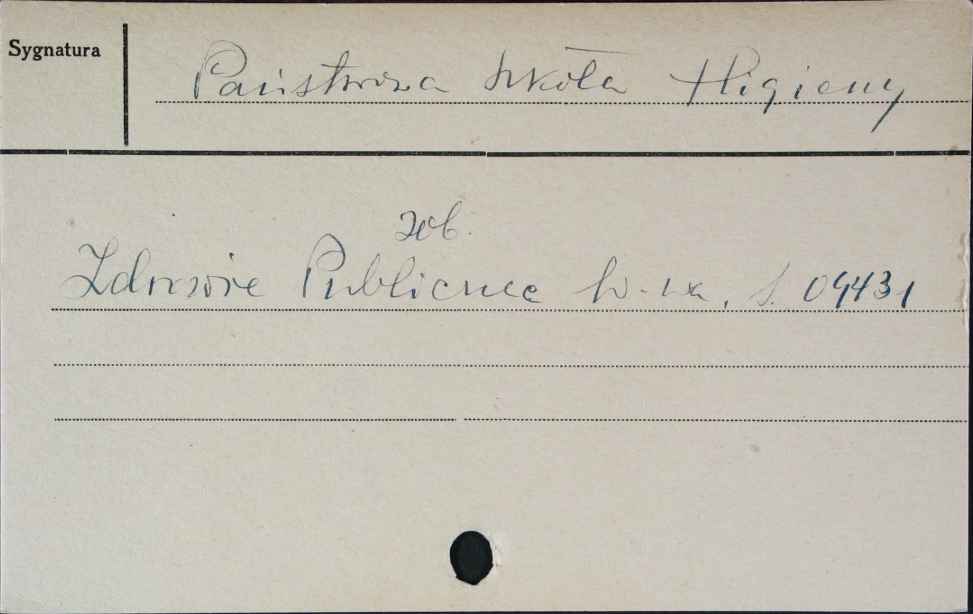 Sygnatura
Państwowa Szkoła Higieny
zob.
Zdrowie Publiczne W-wa, S. 09431